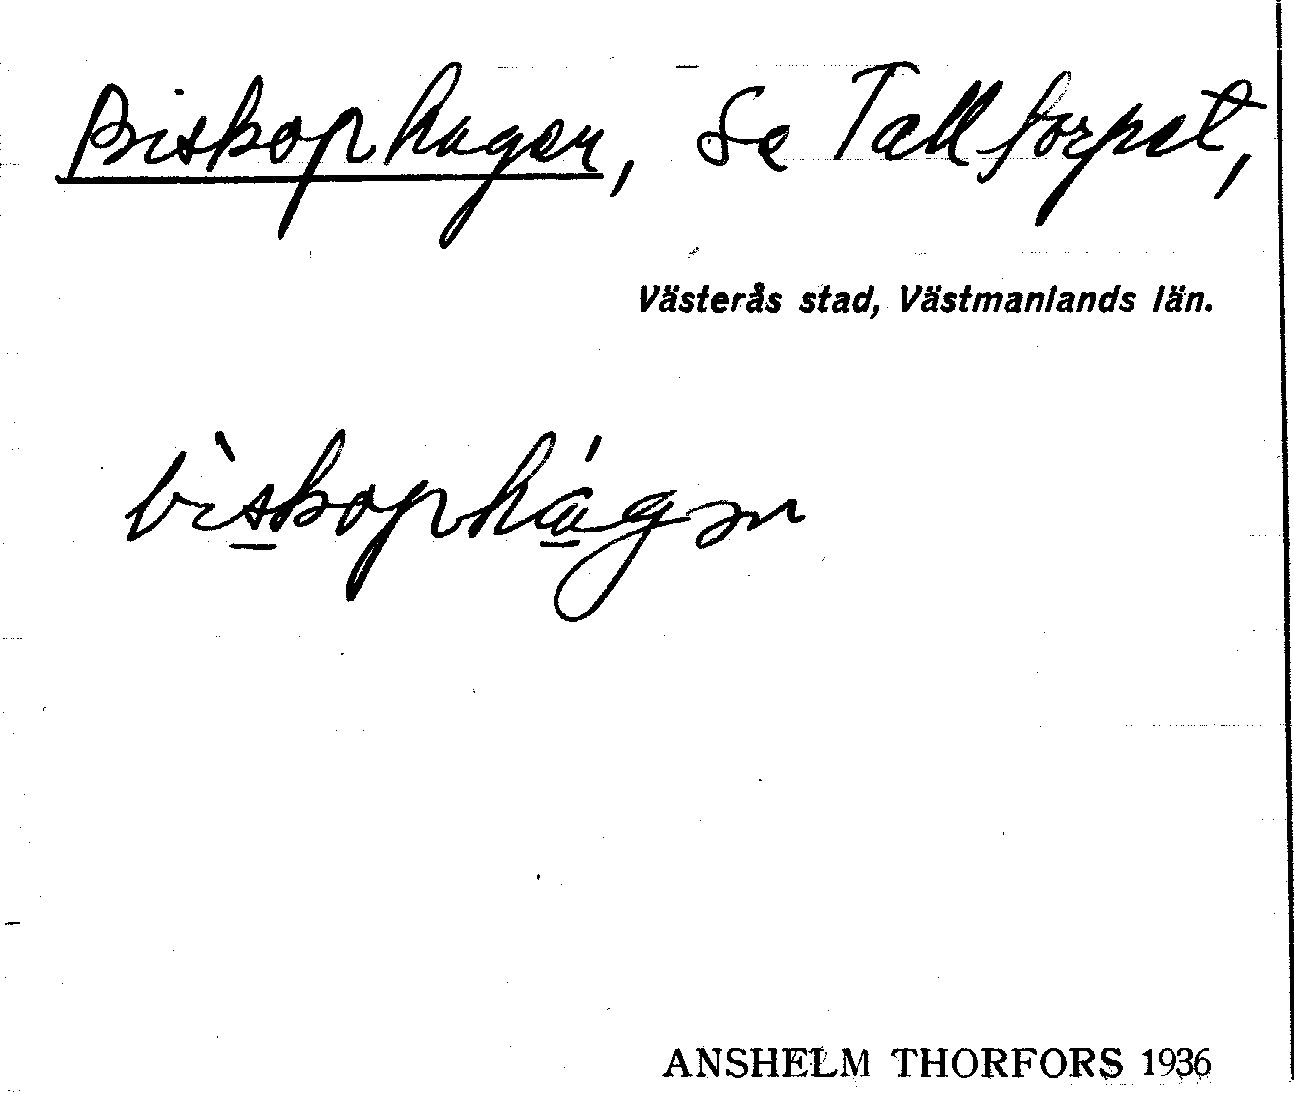 Biskophagen, Se Talltorpet,
Västerås stad, Västmanlands län.
bìskophágən
ANSHELM THORFORS 1936